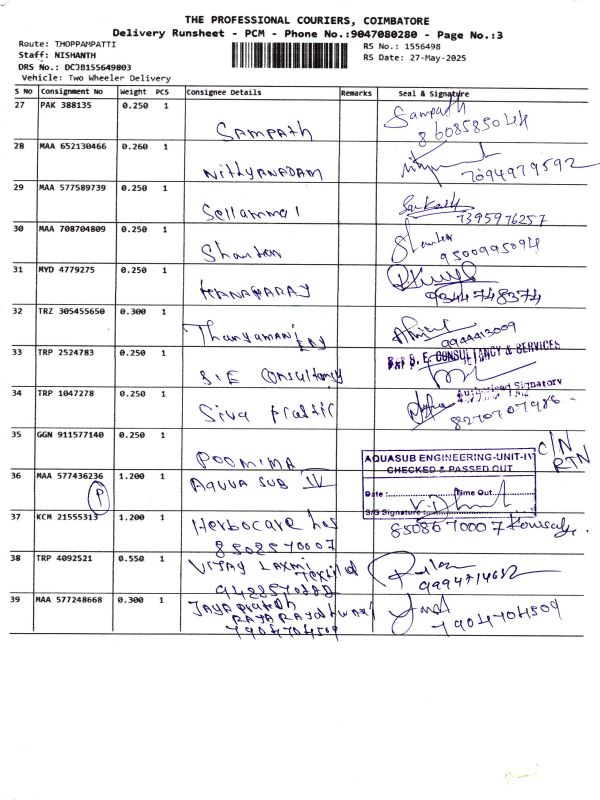 THE PROFESSIONAL COURIERS, COIMBATORE
Delivery Runsheet - PCM - Phone No.:9047080280 - Page No.:3
Route: THOPPAMPATTI
Staff: NISHANTH
DRS No.: DCJB155649803
Vehicle: Two Wheeler Delivery
RS No.: 1556498
RS Date: 27-May-2025
S No Consignment No Weight PCS Consignee Details Remarks Seal & Signature
27 PAK 388135 0.250 1 Sampath Sampath
8608585044
28 MAA 652130466 0.260 1 Nithyanadam
7094979592
29 MAA 577589739 0.250 1 Sellammal
7395976257
30 MAA 708704809 0.250 1 Shanten
9500995094
31 MYD 4779275 0.250 1
9344748374
32 TRZ 305455650 0.300 1 Thangamani
9944413009
33 TRP 2524783 0.250 1 S.E Consultancy
S. E. CONSULTANCY & SERVICES
Authorised Signatory
34 TRP 1047278 0.250 1 Siva
8270707986
35 GGN 911577140 0.250 1 Poomima
C/N
RTN
36 MAA 577436236 1.200 1 Aquva Sub IV
P
AQUASUB ENGINEERING-UNIT-IV
CHECKED & PASSED OUT
Date :. Time Out.
S/G Signature :
37 KCM 21555313 1.200 1 Herbocare
8508570007
8508670007
38 TRP 4092521 0.550 1 Vijay Laxmi
9994714682
39 MAA 577248668 0.300 1 Jaya
7904704509
7904704509